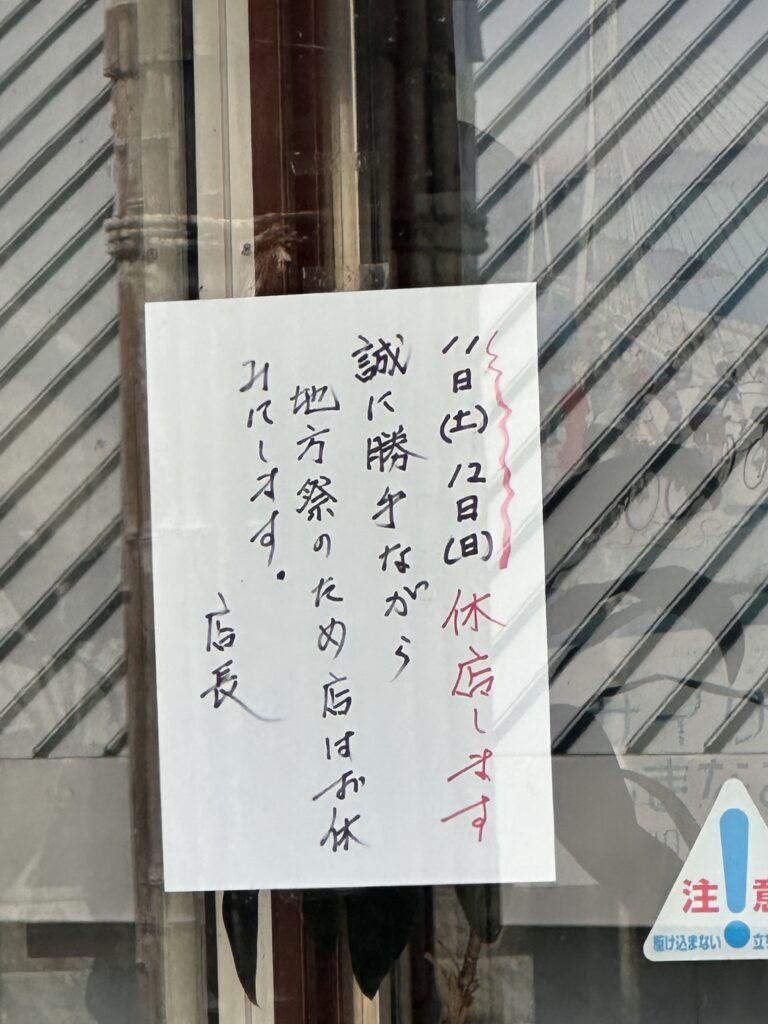 11日(土)12日(日)休店します
誠に勝手ながら
地方祭のため店はお休
みにします。
店長
注意
駆け込まない
立ち